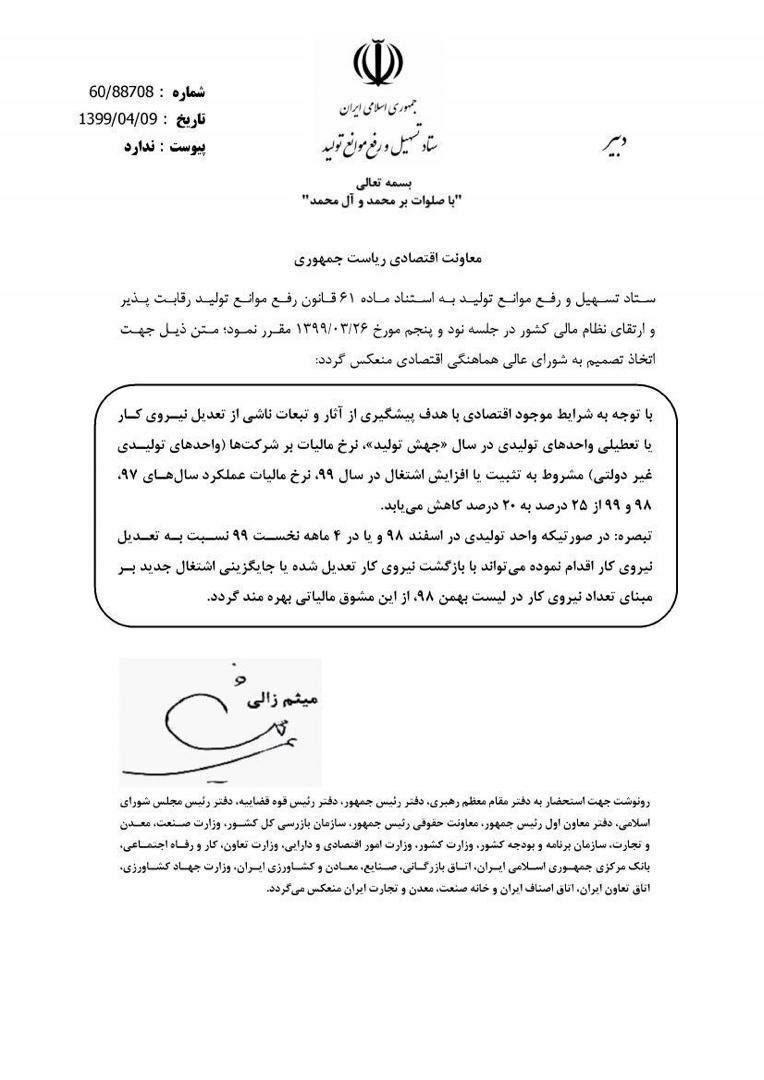 جمهوری اسلامی ایران
ستاد تسهیل و رفع موانع تولید
دبیر
شماره : 60/88708
تاریخ : 1399/04/09
پیوست : ندارد
بسمه تعالی
"با صلوات بر محمد و آل محمد"
معاونت اقتصادی ریاست جمهوری
ستاد تسهیل و رفع موانع تولید به استناد ماده ۶۱ قانون رفع موانع تولید رقابت پذیر
و ارتقای نظام مالی کشور در جلسه نود و پنجم مورخ ۱۳۹۹/۰۳/۲۶ مقرر نمود؛ متن ذیل جهت
اتخاذ تصمیم به شورای عالی هماهنگی اقتصادی منعکس گردد:
با توجه به شرایط موجود اقتصادی با هدف پیشگیری از آثار و تبعات ناشی از تعدیل نیروی کار
یا تعطیلی واحدهای تولیدی در سال «جهش تولید»، نرخ مالیات بر شرکت‌ها (واحدهای تولیدی
غیر دولتی) مشروط به تثبیت یا افزایش اشتغال در سال ۹۹، نرخ مالیات عملکرد سال‌های ۹۷،
۹۸ و ۹۹ از ۲۵ درصد به ۲۰ درصد کاهش می‌یابد.
تبصره: در صورتیکه واحد تولیدی در اسفند ۹۸ و یا در ۴ ماهه نخست ۹۹ نسبت به تعدیل
نیروی کار اقدام نموده می‌تواند با بازگشت نیروی کار تعدیل شده یا جایگزینی اشتغال جدید بر
مبنای تعداد نیروی کار در لیست بهمن ۹۸، از این مشوق مالیاتی بهره مند گردد.
میثم زالی
رونوشت جهت استحضار به دفتر مقام معظم رهبری، دفتر رئیس جمهور، دفتر رئیس قوه قضاییه، دفتر رئیس مجلس شورای
اسلامی، دفتر معاون اول رئیس جمهور، معاونت حقوقی رئیس جمهور، سازمان بازرسی کل کشور، وزارت صنعت، معدن
و تجارت، سازمان برنامه و بودجه کشور، وزارت کشور، وزارت امور اقتصادی و دارایی، وزارت تعاون، کار و رفاه اجتماعی،
بانک مرکزی جمهوری اسلامی ایران، اتاق بازرگانی، صنایع، معادن و کشاورزی ایران، وزارت جهاد کشاورزی،
اتاق تعاون ایران، اتاق اصناف ایران و خانه صنعت، معدن و تجارت ایران منعکس می‌گردد.